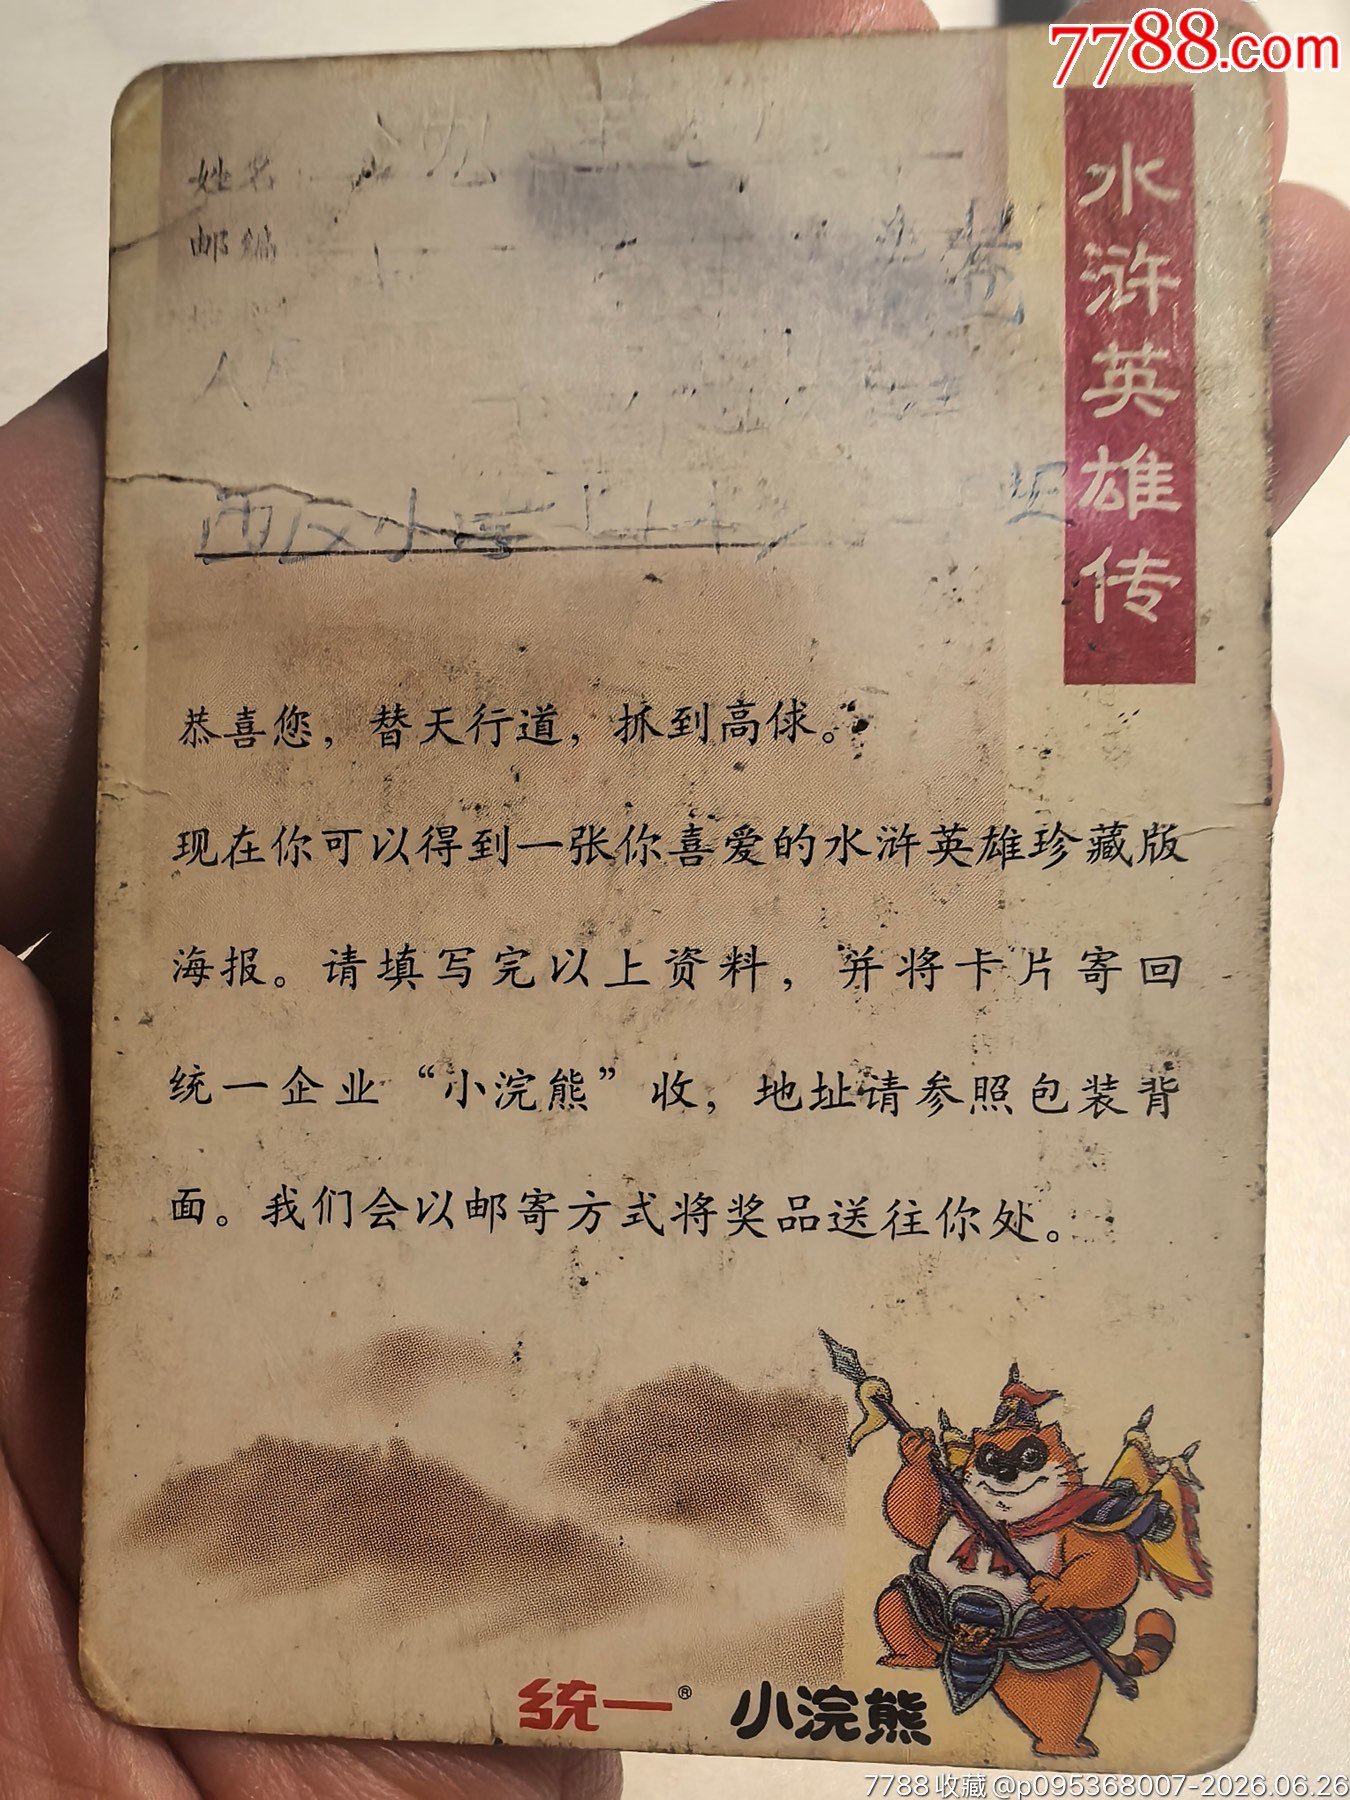 7788.com
水浒英雄传
姓名
邮编
恭喜您，替天行道，抓到高俅。
现在你可以得到一张你喜爱的水浒英雄珍藏版
海报。请填写完以上资料，并将卡片寄回
统一企业“小浣熊”收，地址请参照包装背
面。我们会以邮寄方式将奖品送往你处。
统一® 小浣熊
7788收藏@p095368007-2026.06.26